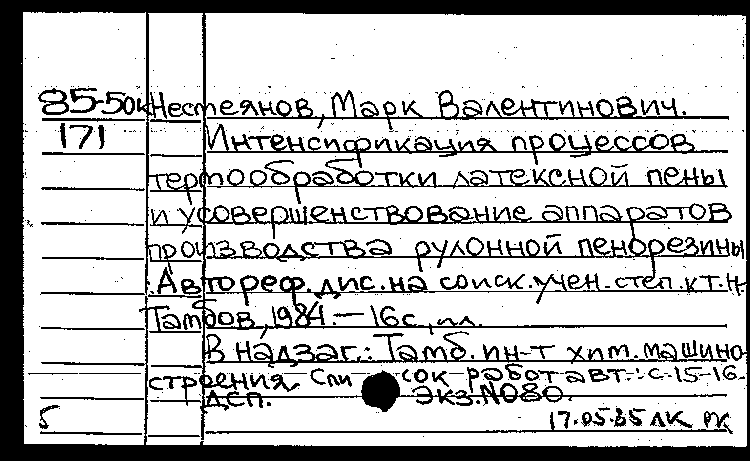 85-50к Нестеянов, Марк Валентинович.
171 Интенсификация процессов
термообработки латексной пены
и усовершенствование аппаратов
производства рулонной пенорезины
: Автореф. дис. на соиск. учен. степ. к.т.н
Тамбов, 1984. — 16 с., ил.
В надзаг.: Тамб. ин-т хим. машино-
строения. Список работ авт.: с. 15-16.
ДСП. Экз. N080.
5 17.05.85 ЛК РК